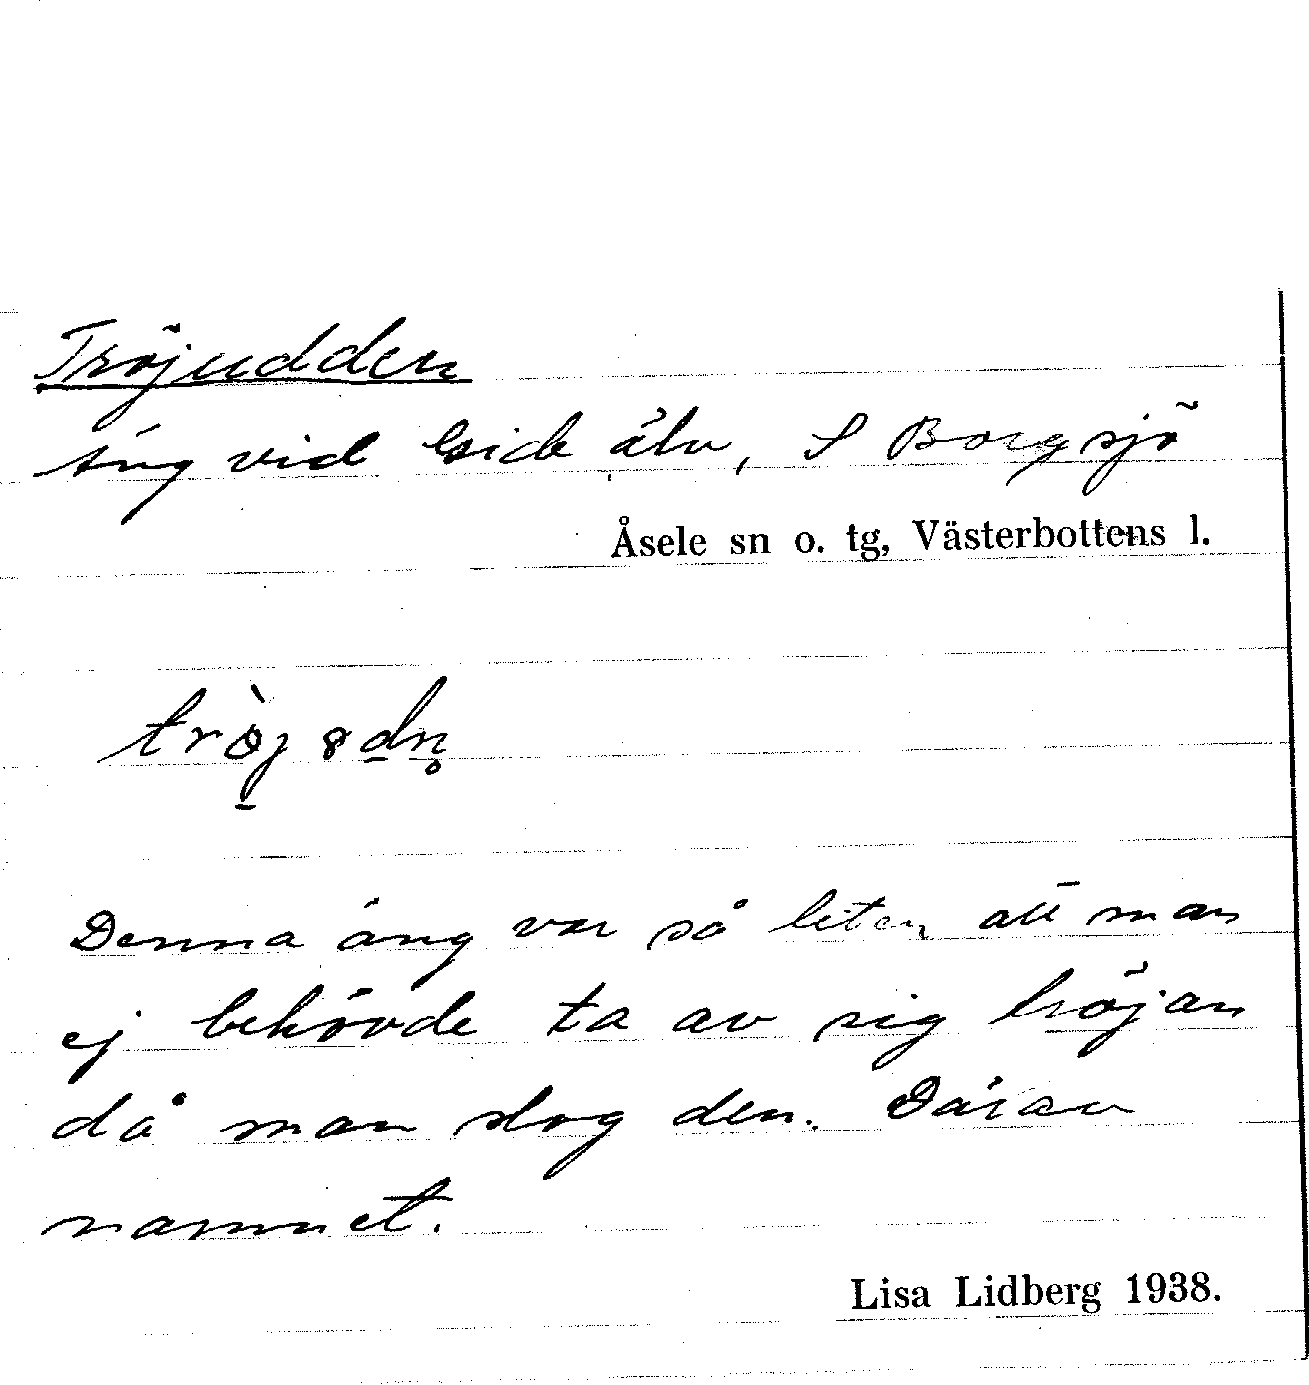 Tröjudden
Äng vid Gide älv, S Borgsjö
Åsele sn o. tg, Västerbottens l.
Denna äng var så liten att man
ej behövde ta av sig tröjan
då man slog den. Därav
namnet.
Lisa Lidberg 1938.